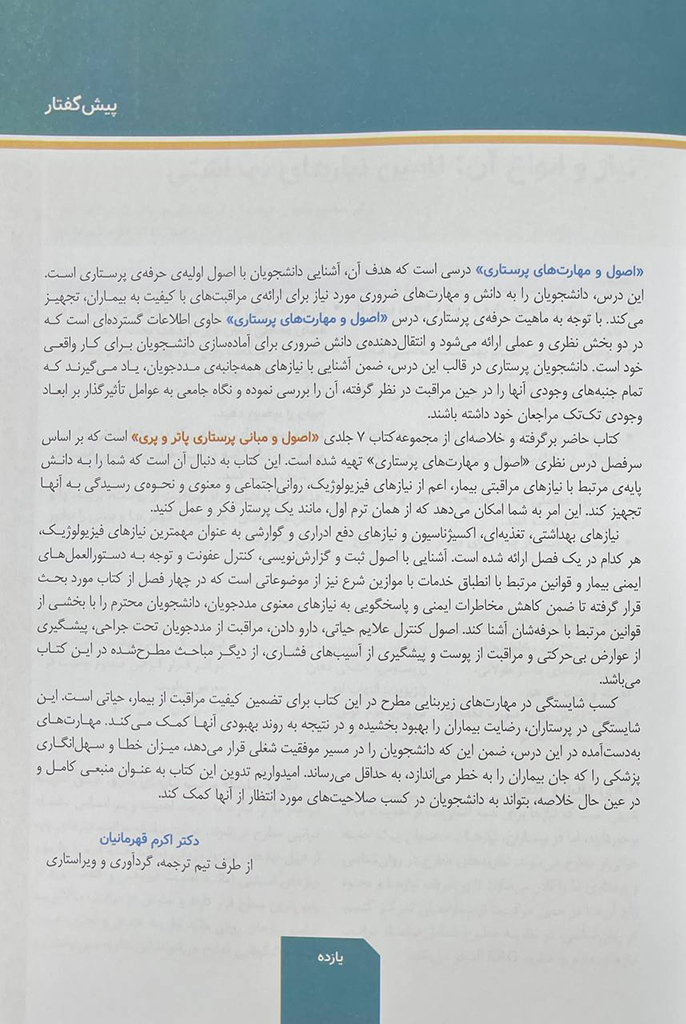 پیش‌گفتار
«اصول و مهارت‌های پرستاری» درسی است که هدف آن، آشنایی دانشجویان با اصول اولیه‌ی حرفه‌ی پرستاری است.
این درس، دانشجویان را به دانش و مهارت‌های ضروری مورد نیاز برای ارائه‌ی مراقبت‌های با کیفیت به بیماران، تجهیز
می‌کند. با توجه به ماهیت حرفه‌ی پرستاری، درس «اصول و مهارت‌های پرستاری» حاوی اطلاعات گسترده‌ای است که
در دو بخش نظری و عملی ارائه می‌شود و انتقال‌دهنده‌ی دانش ضروری برای آماده‌سازی دانشجویان برای کار واقعی
خود است. دانشجویان پرستاری در قالب این درس، ضمن آشنایی با نیازهای همه‌جانبه‌ی مددجویان، یاد می‌گیرند که
تمام جنبه‌های وجودی آنها را در حین مراقبت در نظر گرفته، آن را بررسی نموده و نگاه جامعی به عوامل تأثیرگذار بر ابعاد
وجودی تک‌تک مراجعان خود داشته باشند.
کتاب حاضر برگرفته و خلاصه‌ای از مجموعه‌کتاب ۷ جلدی «اصول و مبانی پرستاری پاتر و پری» است که بر اساس
سرفصل درس نظری «اصول و مهارت‌های پرستاری» تهیه شده است. این کتاب به دنبال آن است که شما را به دانش
پایه‌ی مرتبط با نیازهای مراقبتی بیمار، اعم از نیازهای فیزیولوژیک، روانی‌اجتماعی و معنوی و نحوه‌ی رسیدگی به آنها
تجهیز کند. این امر به شما امکان می‌دهد که از همان ترم اول، مانند یک پرستار فکر و عمل کنید.
نیازهای بهداشتی، تغذیه‌ای، اکسیژناسیون و نیازهای دفع ادراری و گوارشی به عنوان مهمترین نیازهای فیزیولوژیک،
هر کدام در یک فصل ارائه شده است. آشنایی با اصول ثبت و گزارش‌نویسی، کنترل عفونت و توجه به دستورالعمل‌های
ایمنی بیمار و قوانین مرتبط با انطباق خدمات با موازین شرع نیز از موضوعاتی است که در چهار فصل از کتاب مورد بحث
قرار گرفته تا ضمن کاهش مخاطرات ایمنی و پاسخگویی به نیازهای معنوی مددجویان، دانشجویان محترم را با بخشی از
قوانین مرتبط با حرفه‌شان آشنا کند. اصول کنترل علایم حیاتی، دارو دادن، مراقبت از مددجویان تحت جراحی، پیشگیری
از عوارض بی‌حرکتی و مراقبت از پوست و پیشگیری از آسیب‌های فشاری، از دیگر مباحث مطرح‌شده در این کتاب
می‌باشد.
کسب شایستگی در مهارت‌های زیربنایی مطرح در این کتاب برای تضمین کیفیت مراقبت از بیمار، حیاتی است. این
شایستگی در پرستاران، رضایت بیماران را بهبود بخشیده و در نتیجه به روند بهبودی آنها کمک می‌کند. مهارت‌های
به‌دست‌آمده در این درس، ضمن این که دانشجویان را در مسیر موفقیت شغلی قرار می‌دهد، میزان خطا و سهل‌انگاری
پزشکی را که جان بیماران را به خطر می‌اندازد، به حداقل می‌رساند. امیدواریم تدوین این کتاب به عنوان منبعی کامل و
در عین حال خلاصه، بتواند به دانشجویان در کسب صلاحیت‌های مورد انتظار از آنها کمک کند.
دکتر اکرم قهرمانیان
از طرف تیم ترجمه، گردآوری و ویراستاری
یازده